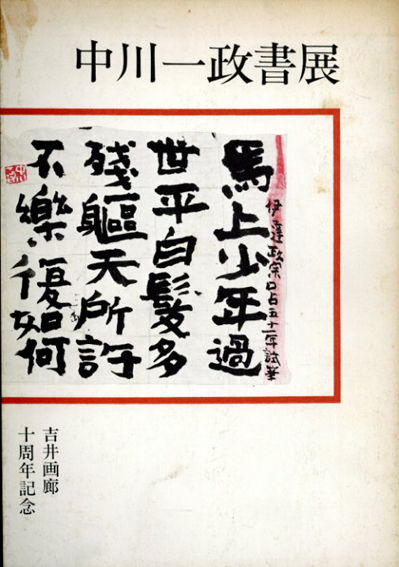 中川一政書展
伊達政宗口占五十一年試筆
馬上少年過
世平白髪多
残軀天所許
不樂復如何
吉井画廊
十周年記念